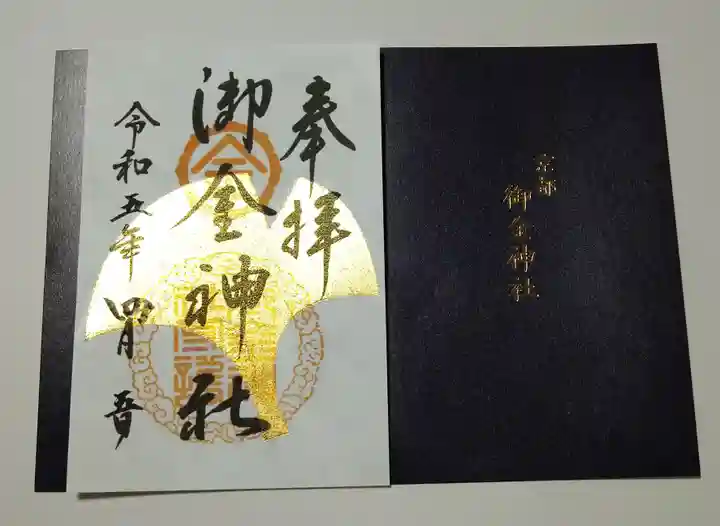 奉拝
御金神社
令和五年 四月 吾日
京都
御金神社